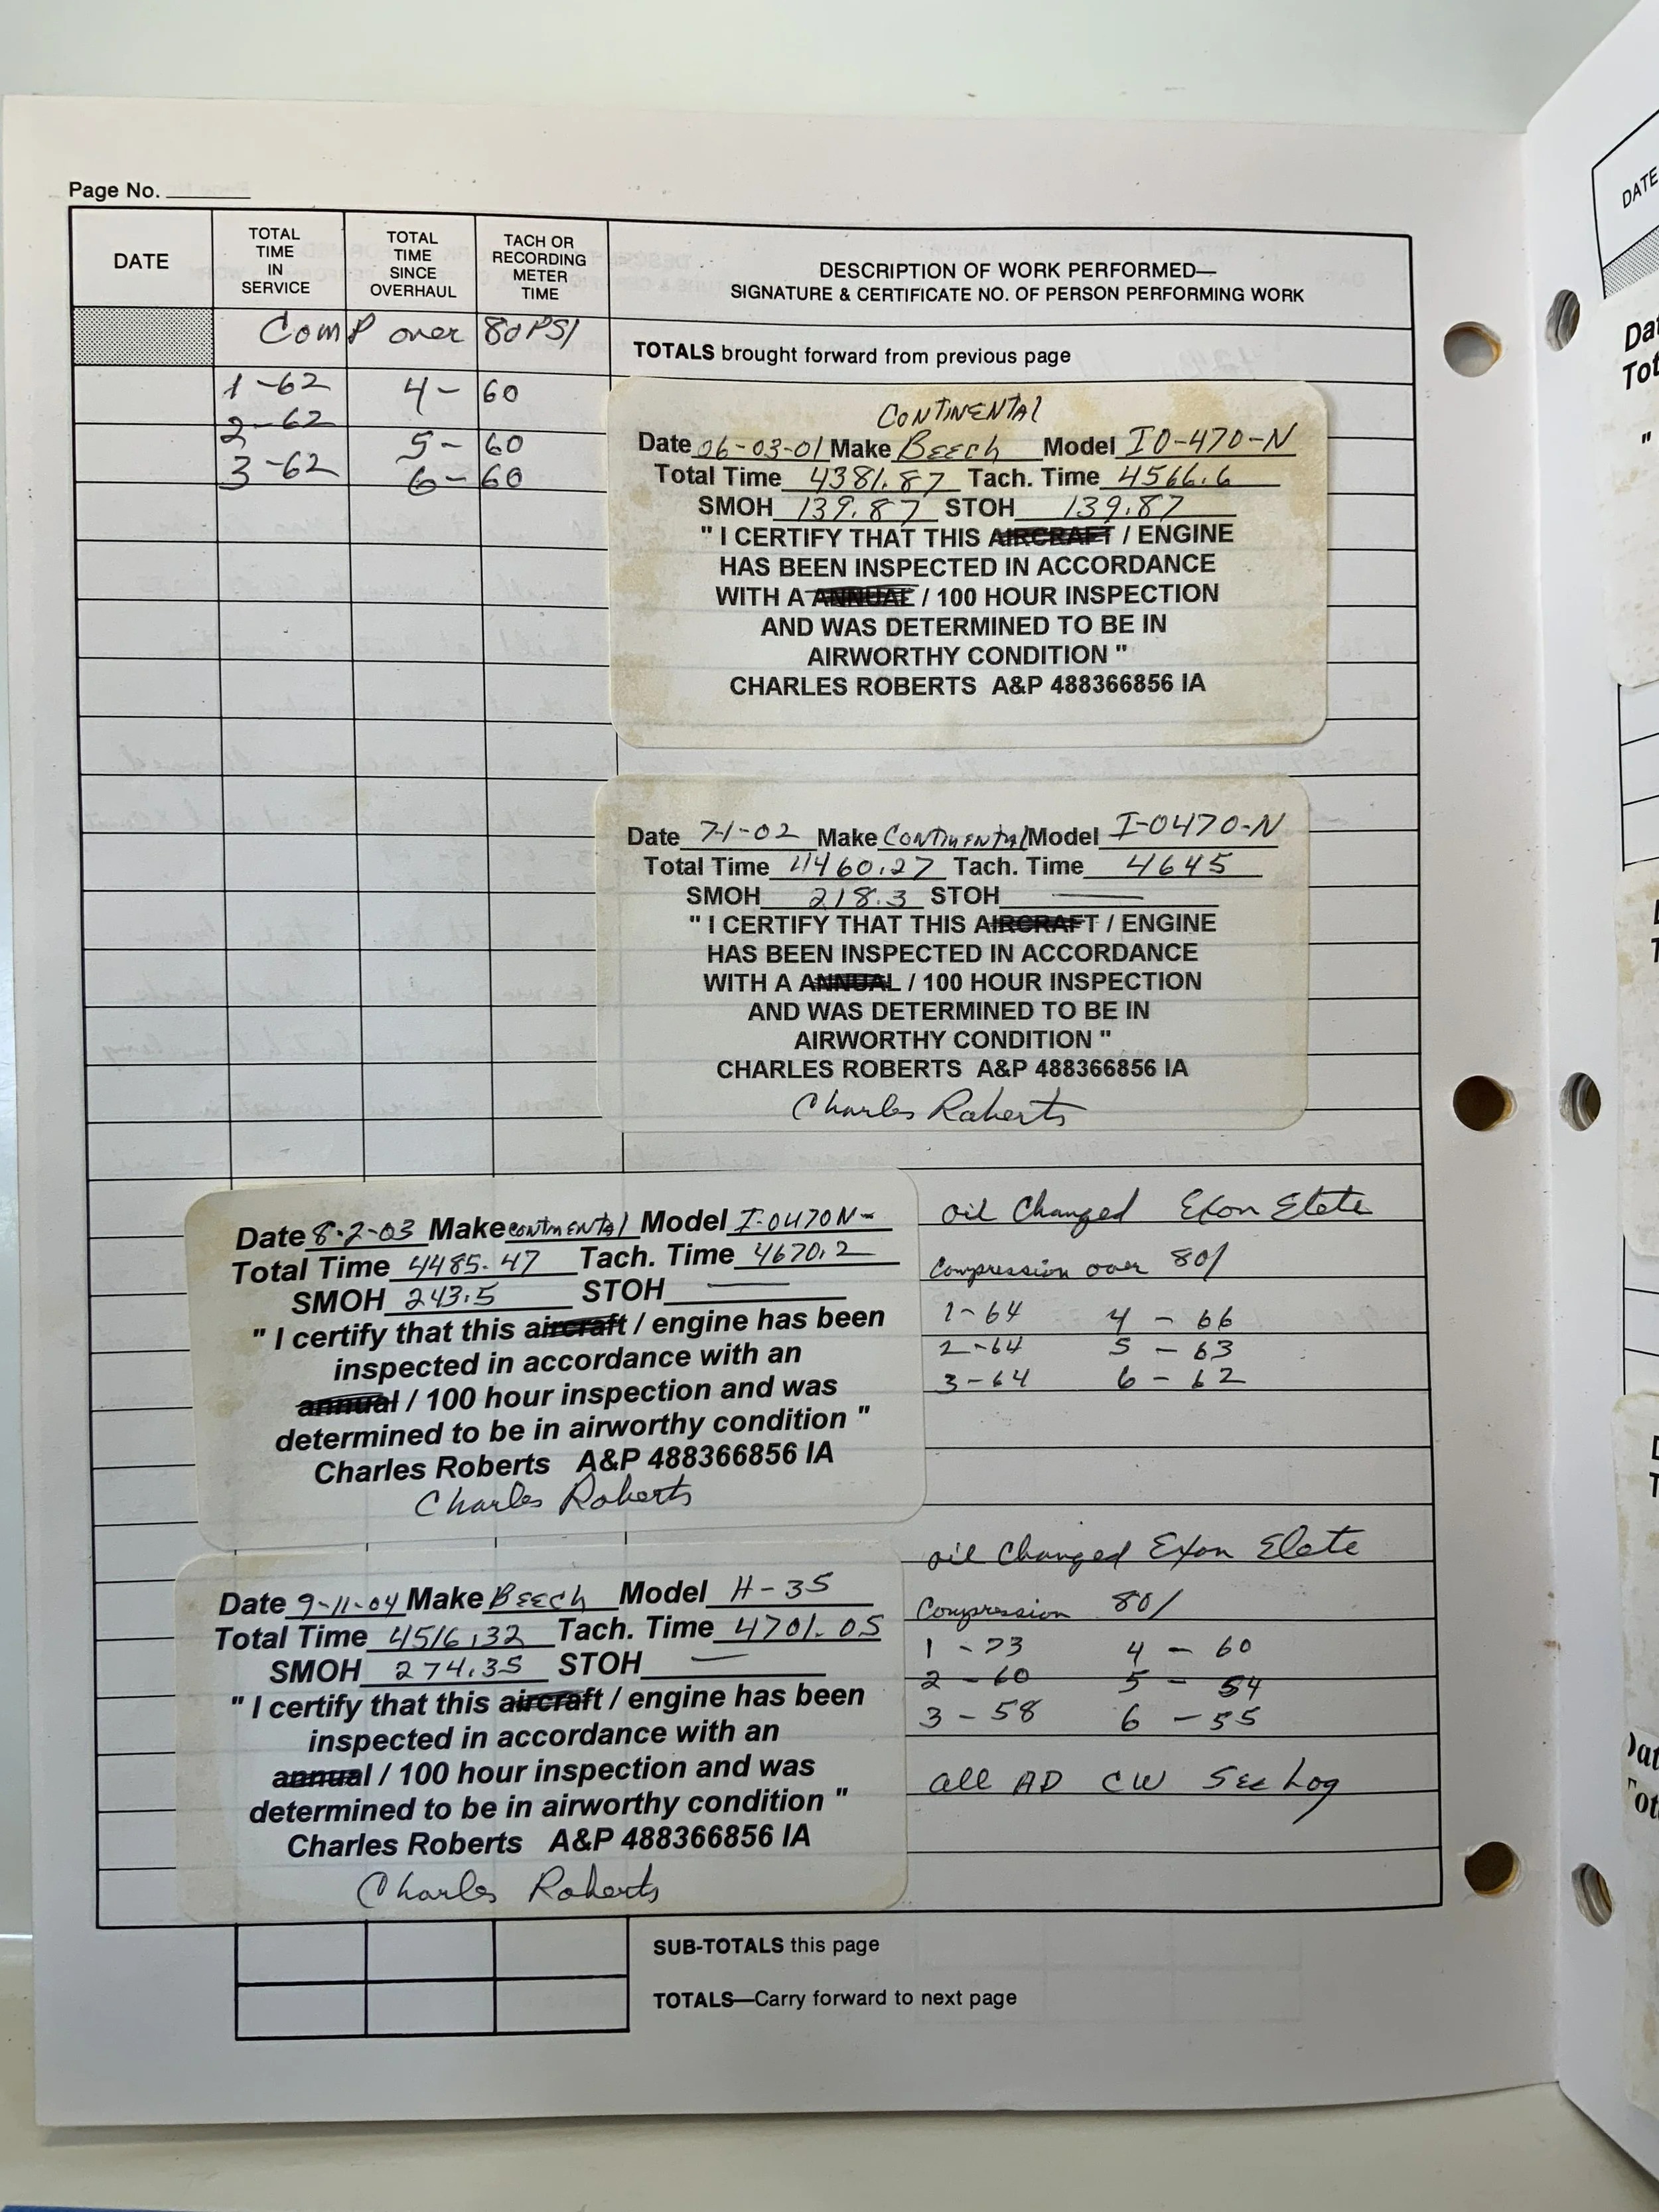 Page No.
DATE
TOTAL TIME IN SERVICE
TOTAL TIME SINCE OVERHAUL
TACH OR RECORDING METER TIME
DESCRIPTION OF WORK PERFORMED—
SIGNATURE & CERTIFICATE NO. OF PERSON PERFORMING WORK
Comp over 80 PSI
TOTALS brought forward from previous page
1-62 4-60
2-62
5-60
3-62 6-60
CONTINENTAL
Date 06-03-01 Make BEECH Model IO-470-N
Total Time 4381.87 Tach. Time 4566.6
SMOH 139.87 STOH 139.87
" I CERTIFY THAT THIS AIRCRAFT / ENGINE
HAS BEEN INSPECTED IN ACCORDANCE
WITH A ANNUAL / 100 HOUR INSPECTION
AND WAS DETERMINED TO BE IN
AIRWORTHY CONDITION "
CHARLES ROBERTS A&P 488366856 IA
Date 7-1-02 Make CONTINENTAL Model I-0470-N
Total Time 4460.27 Tach. Time 4645
SMOH 218.3 STOH —
" I CERTIFY THAT THIS AIRCRAFT / ENGINE
HAS BEEN INSPECTED IN ACCORDANCE
WITH A ANNUAL / 100 HOUR INSPECTION
AND WAS DETERMINED TO BE IN
AIRWORTHY CONDITION "
CHARLES ROBERTS A&P 488366856 IA
Charles Roberts
Date 8-2-03 Make CONTINENTAL Model I-0470N-
Total Time 4485.47 Tach. Time 4670.2
SMOH 243.5 STOH —
" I certify that this aircraft / engine has been
inspected in accordance with an
annual / 100 hour inspection and was
determined to be in airworthy condition "
Charles Roberts A&P 488366856 IA
Charles Roberts
oil Changed Exon Elete
Compression over 80/
1-64 4 - 66
2-64 5 - 63
3-64 6 - 62
Date 9-11-04 Make BEECH Model H-35
Total Time 4516.32 Tach. Time 4701.05
SMOH 274.35 STOH —
" I certify that this aircraft / engine has been
inspected in accordance with an
annual / 100 hour inspection and was
determined to be in airworthy condition "
Charles Roberts A&P 488366856 IA
Charles Roberts
oil Changed Exon Elete
Compression 80/
1 - 73 4 - 60
2 - 60 5 - 54
3 - 58 6 - 55
all AD CW See Log
SUB-TOTALS this page
TOTALS—Carry forward to next page
DATE